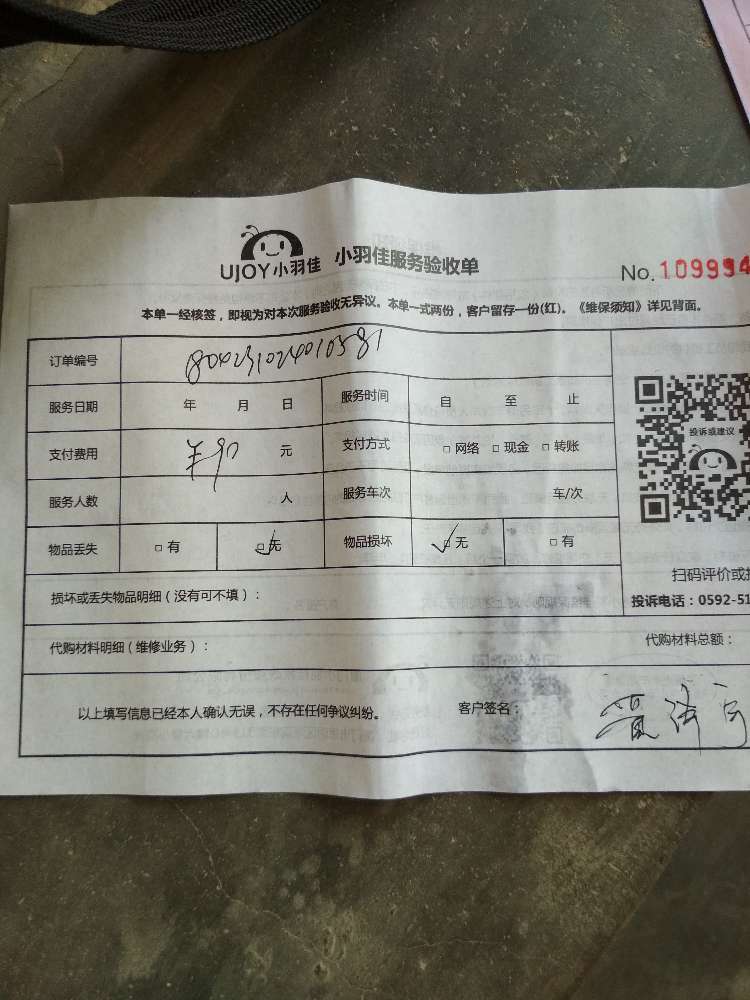 UJOY小羽佳 小羽佳服务验收单 No.109994
本单一经核签，即视为对本次服务验收无异议。本单一式两份，客户留存一份(红)。《维保须知》详见背面。
订单编号
服务日期 年 月 日 服务时间 自 至 止
支付费用 ¥90 元 支付方式 □网络 □现金 □转账
服务人数 人 服务车次 车/次
投诉或建议
物品丢失 □有 □无 物品损坏 □无 □有
扫码评价或
损坏或丢失物品明细（没有可不填）：
投诉电话：0592-51
代购材料明细（维修业务）：
代购材料总额：
以上填写信息已经本人确认无误，不存在任何争议纠纷。 客户签名：